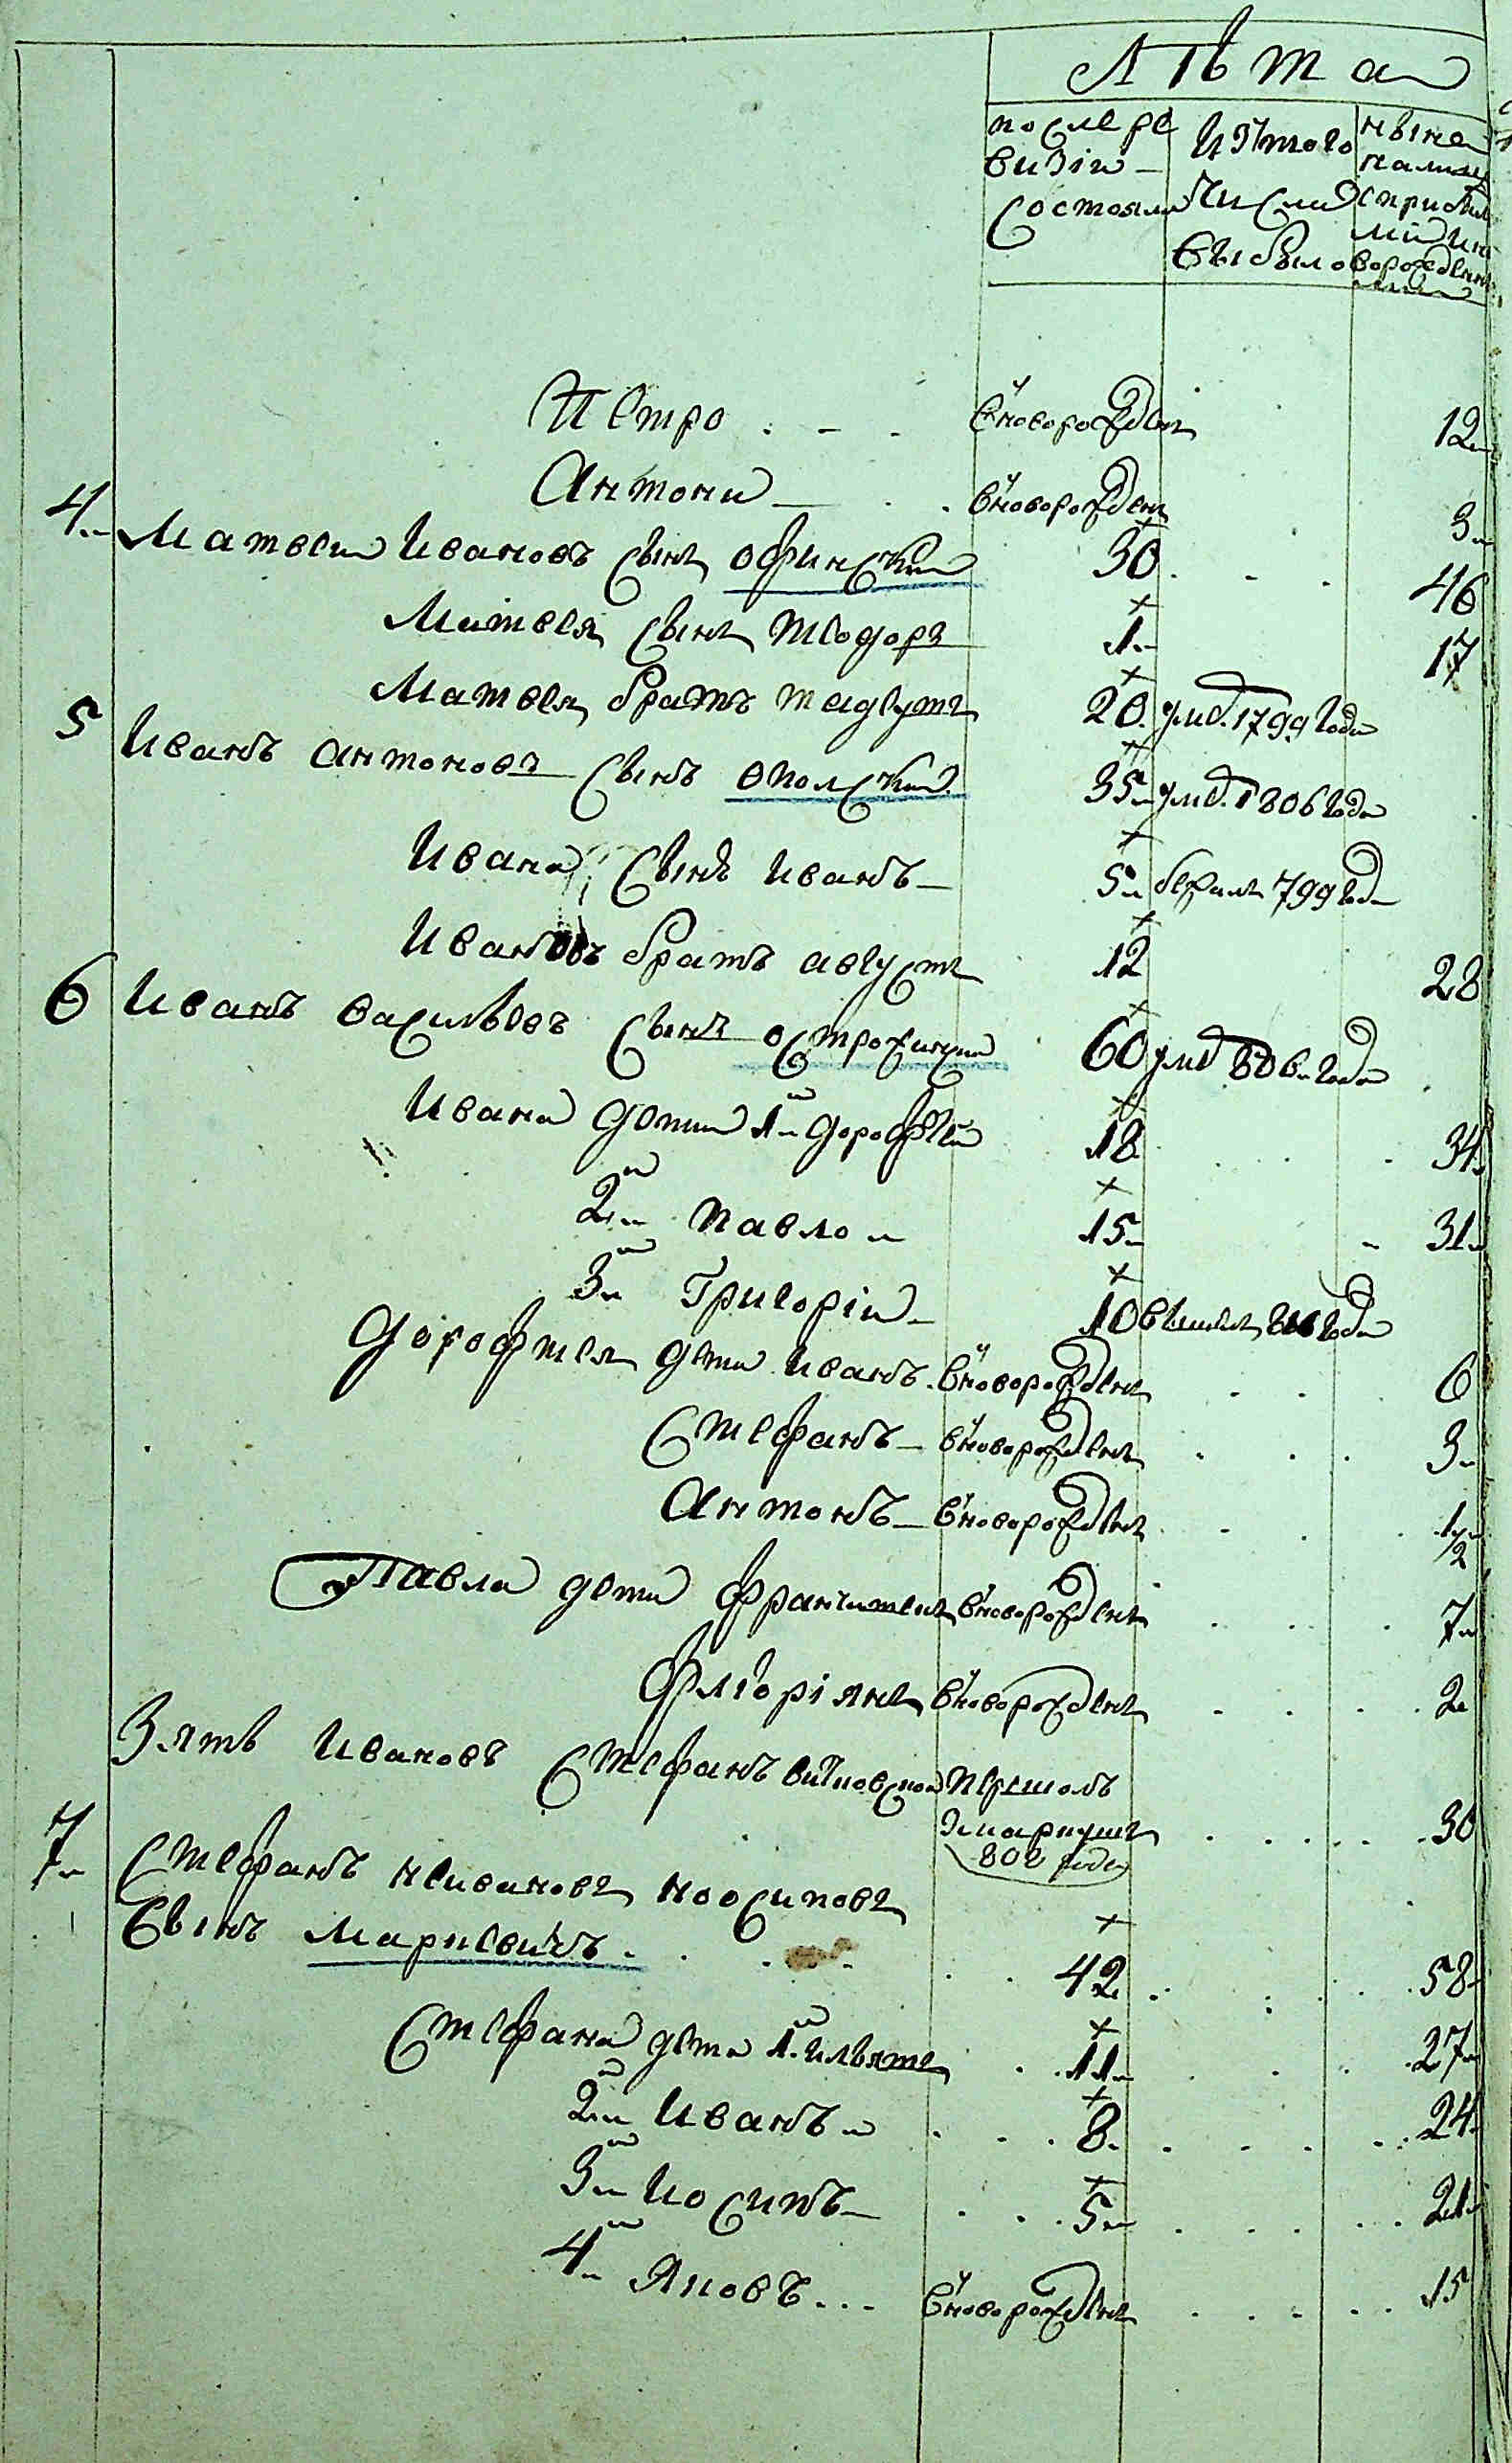 Лѣта
по сле ре визіи состояли
изтого числа выбыло
ныне налицо сприбылыми и новорожденными
Петро вноворожден 12
Антони вноворожден 3
4 Матвеи Ивановъ сынъ офинский 30 46
Матвея сынъ теодоръ 1 17
Матвея братъ тадеушъ 20 умеръ 1799 года
5 Иванъ антоновъ сынъ опольский 35 умер 1806 года
Ивана сынъ иванъ 5 бежалъ 799 года
Ивановъ братъ августъ 12 28
6 Иванъ васильевъ сынъ 60 умер 806 года
Ивана дети 1й дорофей 18 34
2й Павло 15 31
3й Григоріи 10 года
Дорофтея дети иванъ вноворожден 6
Стефанъ вноворожден 3
Антонъ вноворожден 1/2
Павла дети францишек вноворожден 7
флоріянъ вноворожден 2
Зять Ивановъ Стефанъ витковской перешолъ 30
802 года
7 Стефанъ неивановъ ноосиповъ
Сынъ маркевичъ 42 58
Стефана дети 1й ильяшъ 11 27
2й Иванъ 8 24
3й Иосипъ 5 21
4й Яковъ вноворожден 15